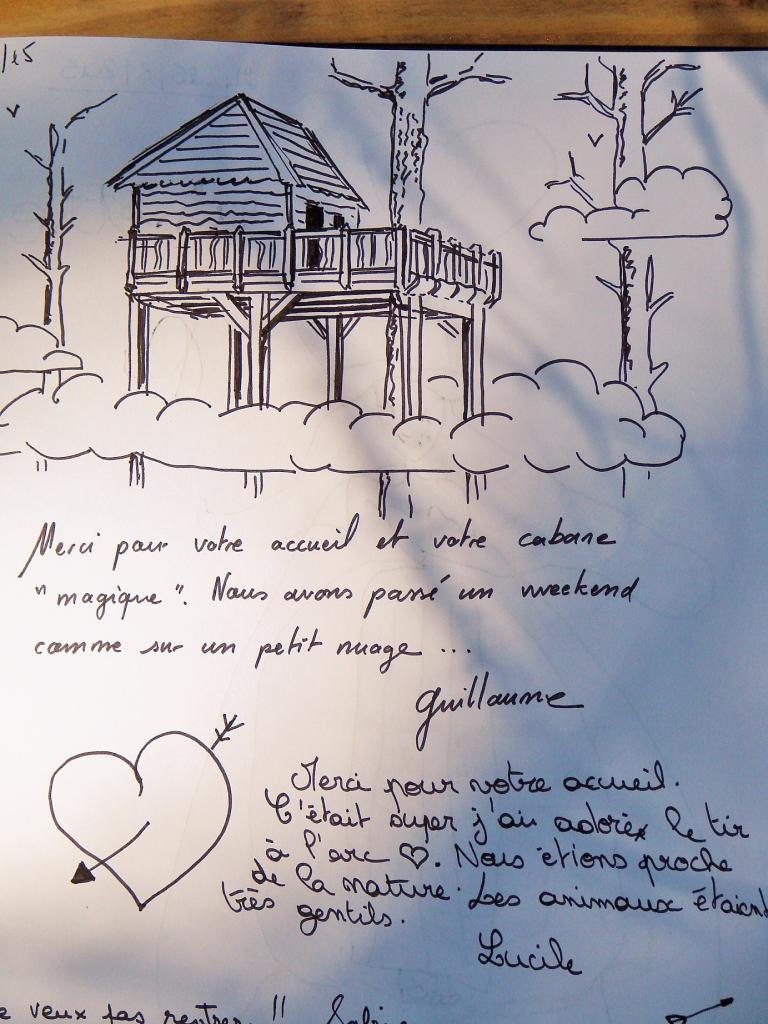 /15
Merci pour votre accueil et votre cabane
"magique". Nous avons passé un weekend
comme sur un petit nuage ...
Guillaume
Merci pour votre accueil.
C'était super j'ai adoré le tir
à l'arc ♡. Nous étions proche
de la nature. Les animaux étaient
très gentils.
Lucile
veux pas rentrer !!